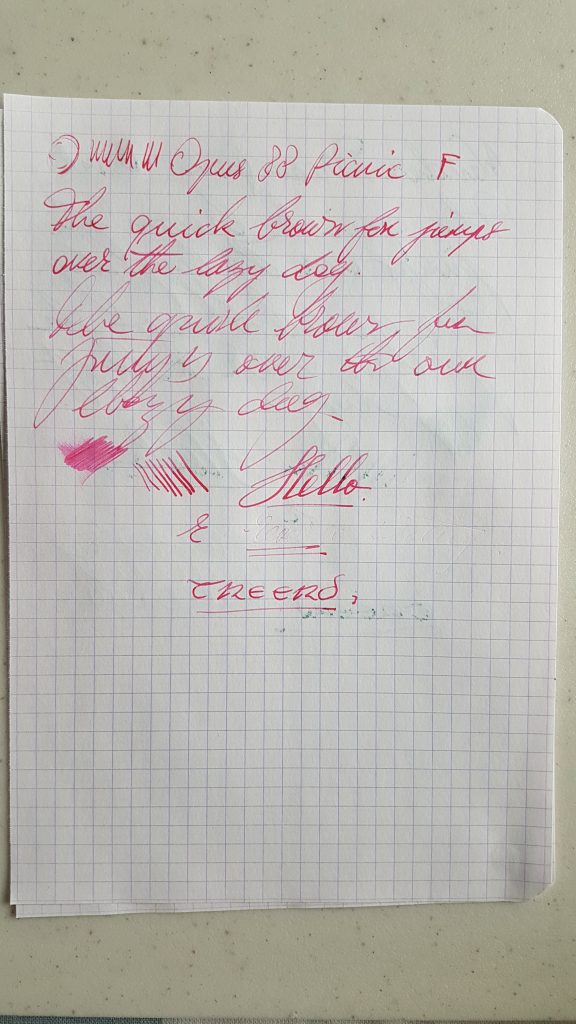 Opus 88 Picnic F
The quick brown fox jumps
over the lazy dog.
The quick brown fox
over
dog
Hello.